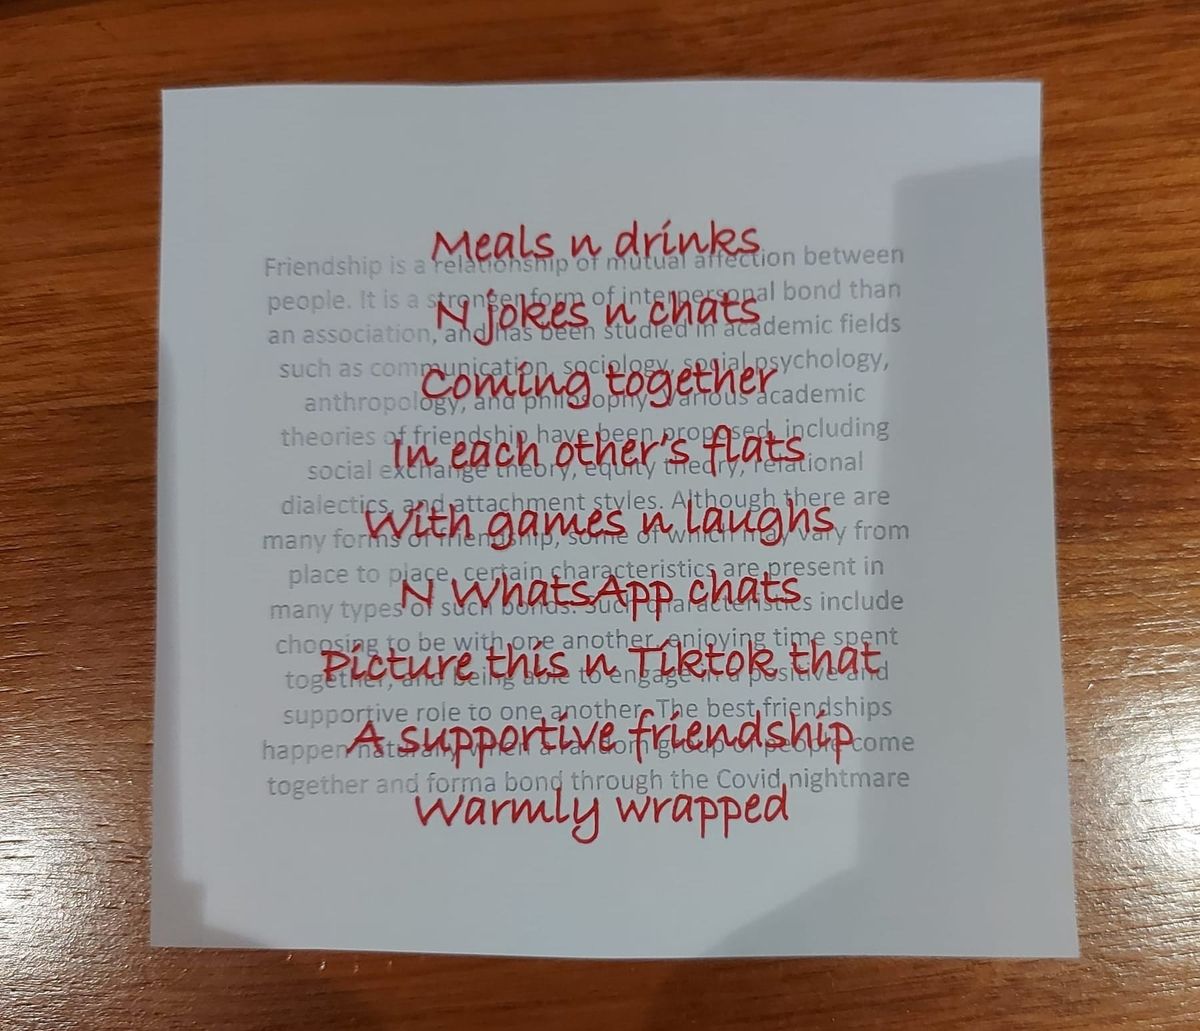 Meals n drinks
N jokes n chats
Coming together
In each other's flats
With games n laughs
N WhatsApp chats
Picture this n Tiktok that
A supportive friendship
Warmly wrapped
Friendship is a relationship of mutual affection between
people. It is a stronger form of interpersonal bond than
an association, and has been studied in academic fields
such as communication, sociology, social psychology,
anthropology, and philosophy. Various academic
theories of friendship have been proposed, including
social exchange theory, equity theory, relational
dialectics, and attachment styles. Although there are
many forms of friendship, some of which may vary from
place to place, certain characteristics are present in
many types of such bonds. Such characteristics include
choosing to be with one another, enjoying time spent
together, and being able to engage in a positive and
supportive role to one another. The best friendships
happen naturally when a random group of people come
together and forma bond through the Covid nightmare